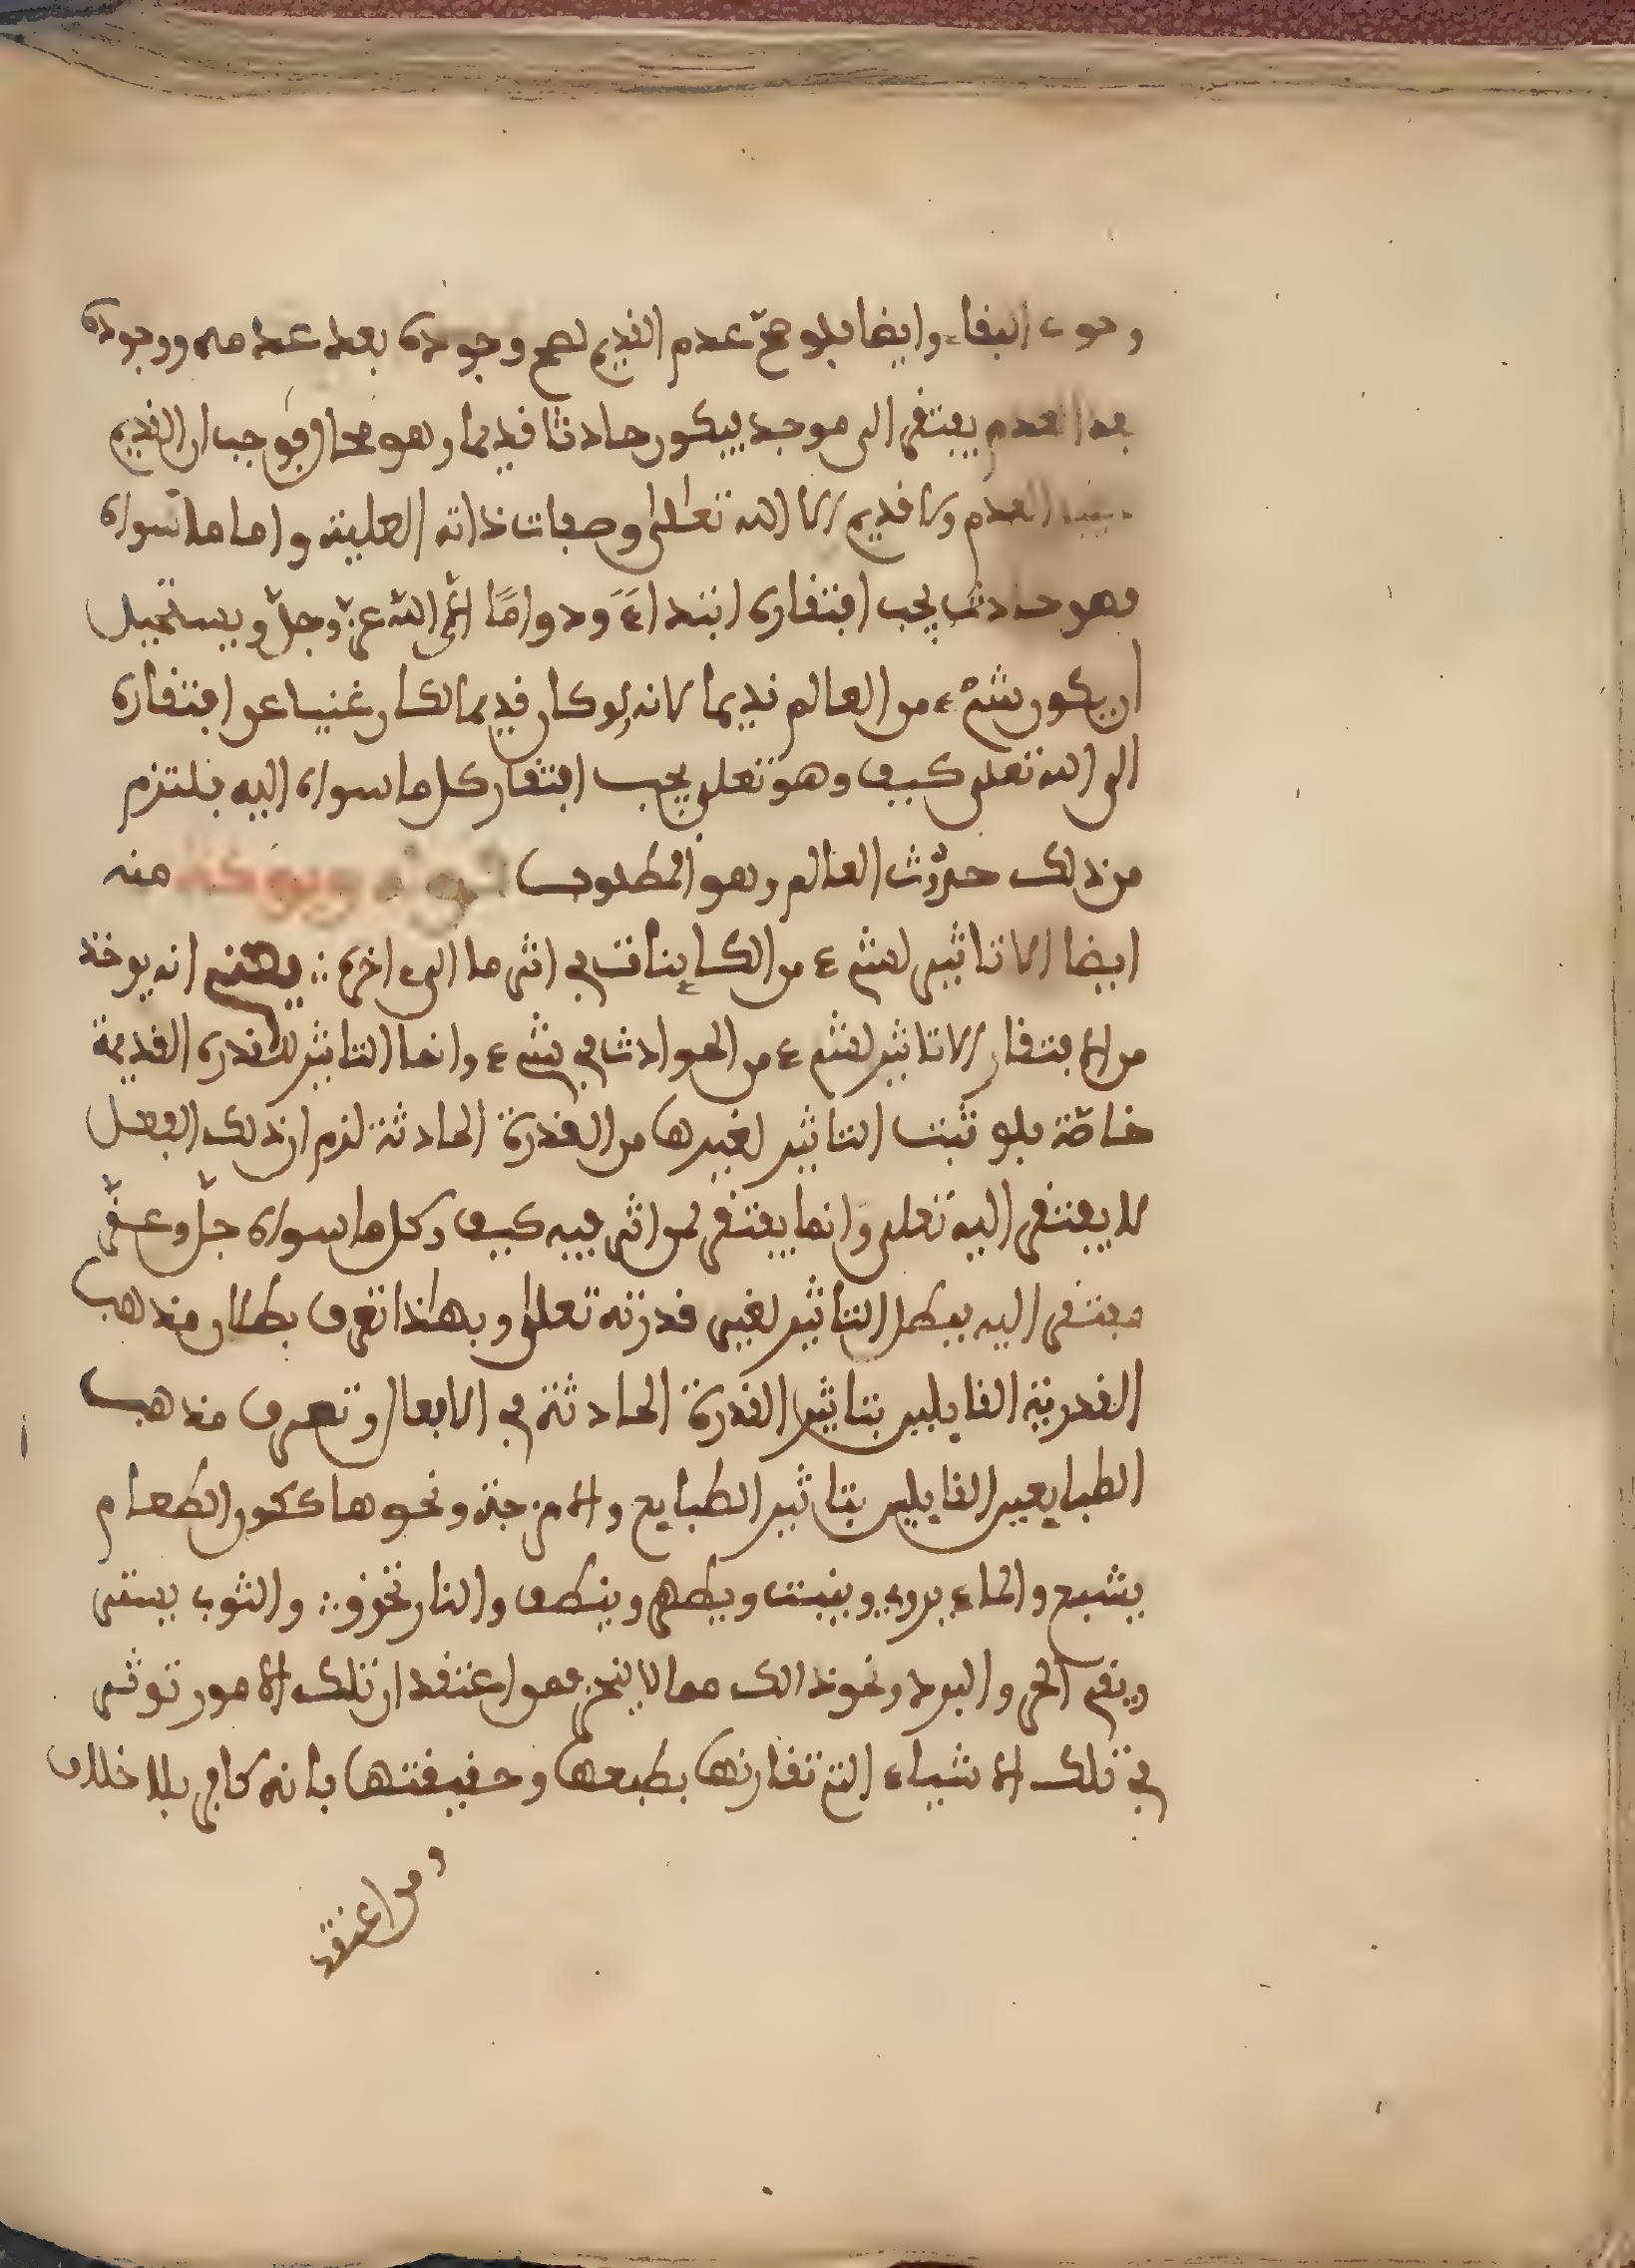 وجوب البقاء وايضا فلو صحّ عدم القديم لصح وجوده بعد عدمه ووجوده
بعد العدم يفتقر الى موجد فيكون حادثا قديما وهو محال فوجب ان القديم
العدم ولا قديم الا الله تعالى وصفات ذاته العلية واما ما سواه
فهو حادث يجب افتقاره ابتداءً ودوامًا الى الله عزّ وجلّ ويستحيل
ان يكون شيء من العالم قديما لانه لو كان قديما لكان غنيا عن افتقاره
الى الله تعلى كيف وهو تعلى يجب افتقار كل ما سواه اليه فلتزم
من ذلك حدوث العالم وهو المطلوب قوله ويوخذ منه
ايضا الا تاثير لشيء من الكاينات في اثر ما الى اخره ∴ يعني انه يوخذ
من الافتقار الا تاثير لشيء من الحوادث في شيء وانما التاثير للقدرة القديمة
خاصّة فلو ثبت التاثير لغيرها من القدرة الحادثة لزم ان ذلك الفعل
لا يفتقر اليه تعلى وانما يفتقر لمن اثر فيه كيف وكل ما سواه جلّ وعزّ
مفتقر اليه فبطل التاثير لغير قدرته تعالى وبهذا تعرف بطلان مذهب
القدرية القايلين بتاثير القدرة الحادثة في الافعال وتعرف مذهب
الطبايعيين القايلين بتاثير الطبايع والامزجة ونحوها ككون الطعام
يشبع والماء يروي وينبت ويطهر وينظف والنار تحرق ∴ والثوب يستر
ويقي الحر والبرد ونحو ذالك مما لا ينحصر فمن اعتقد ان تلك الامور توثر
في تلك الاشياء التي تقارنها بطبعها وحقيقتها فانه كافر بلا خلاف
ومن اعتقد